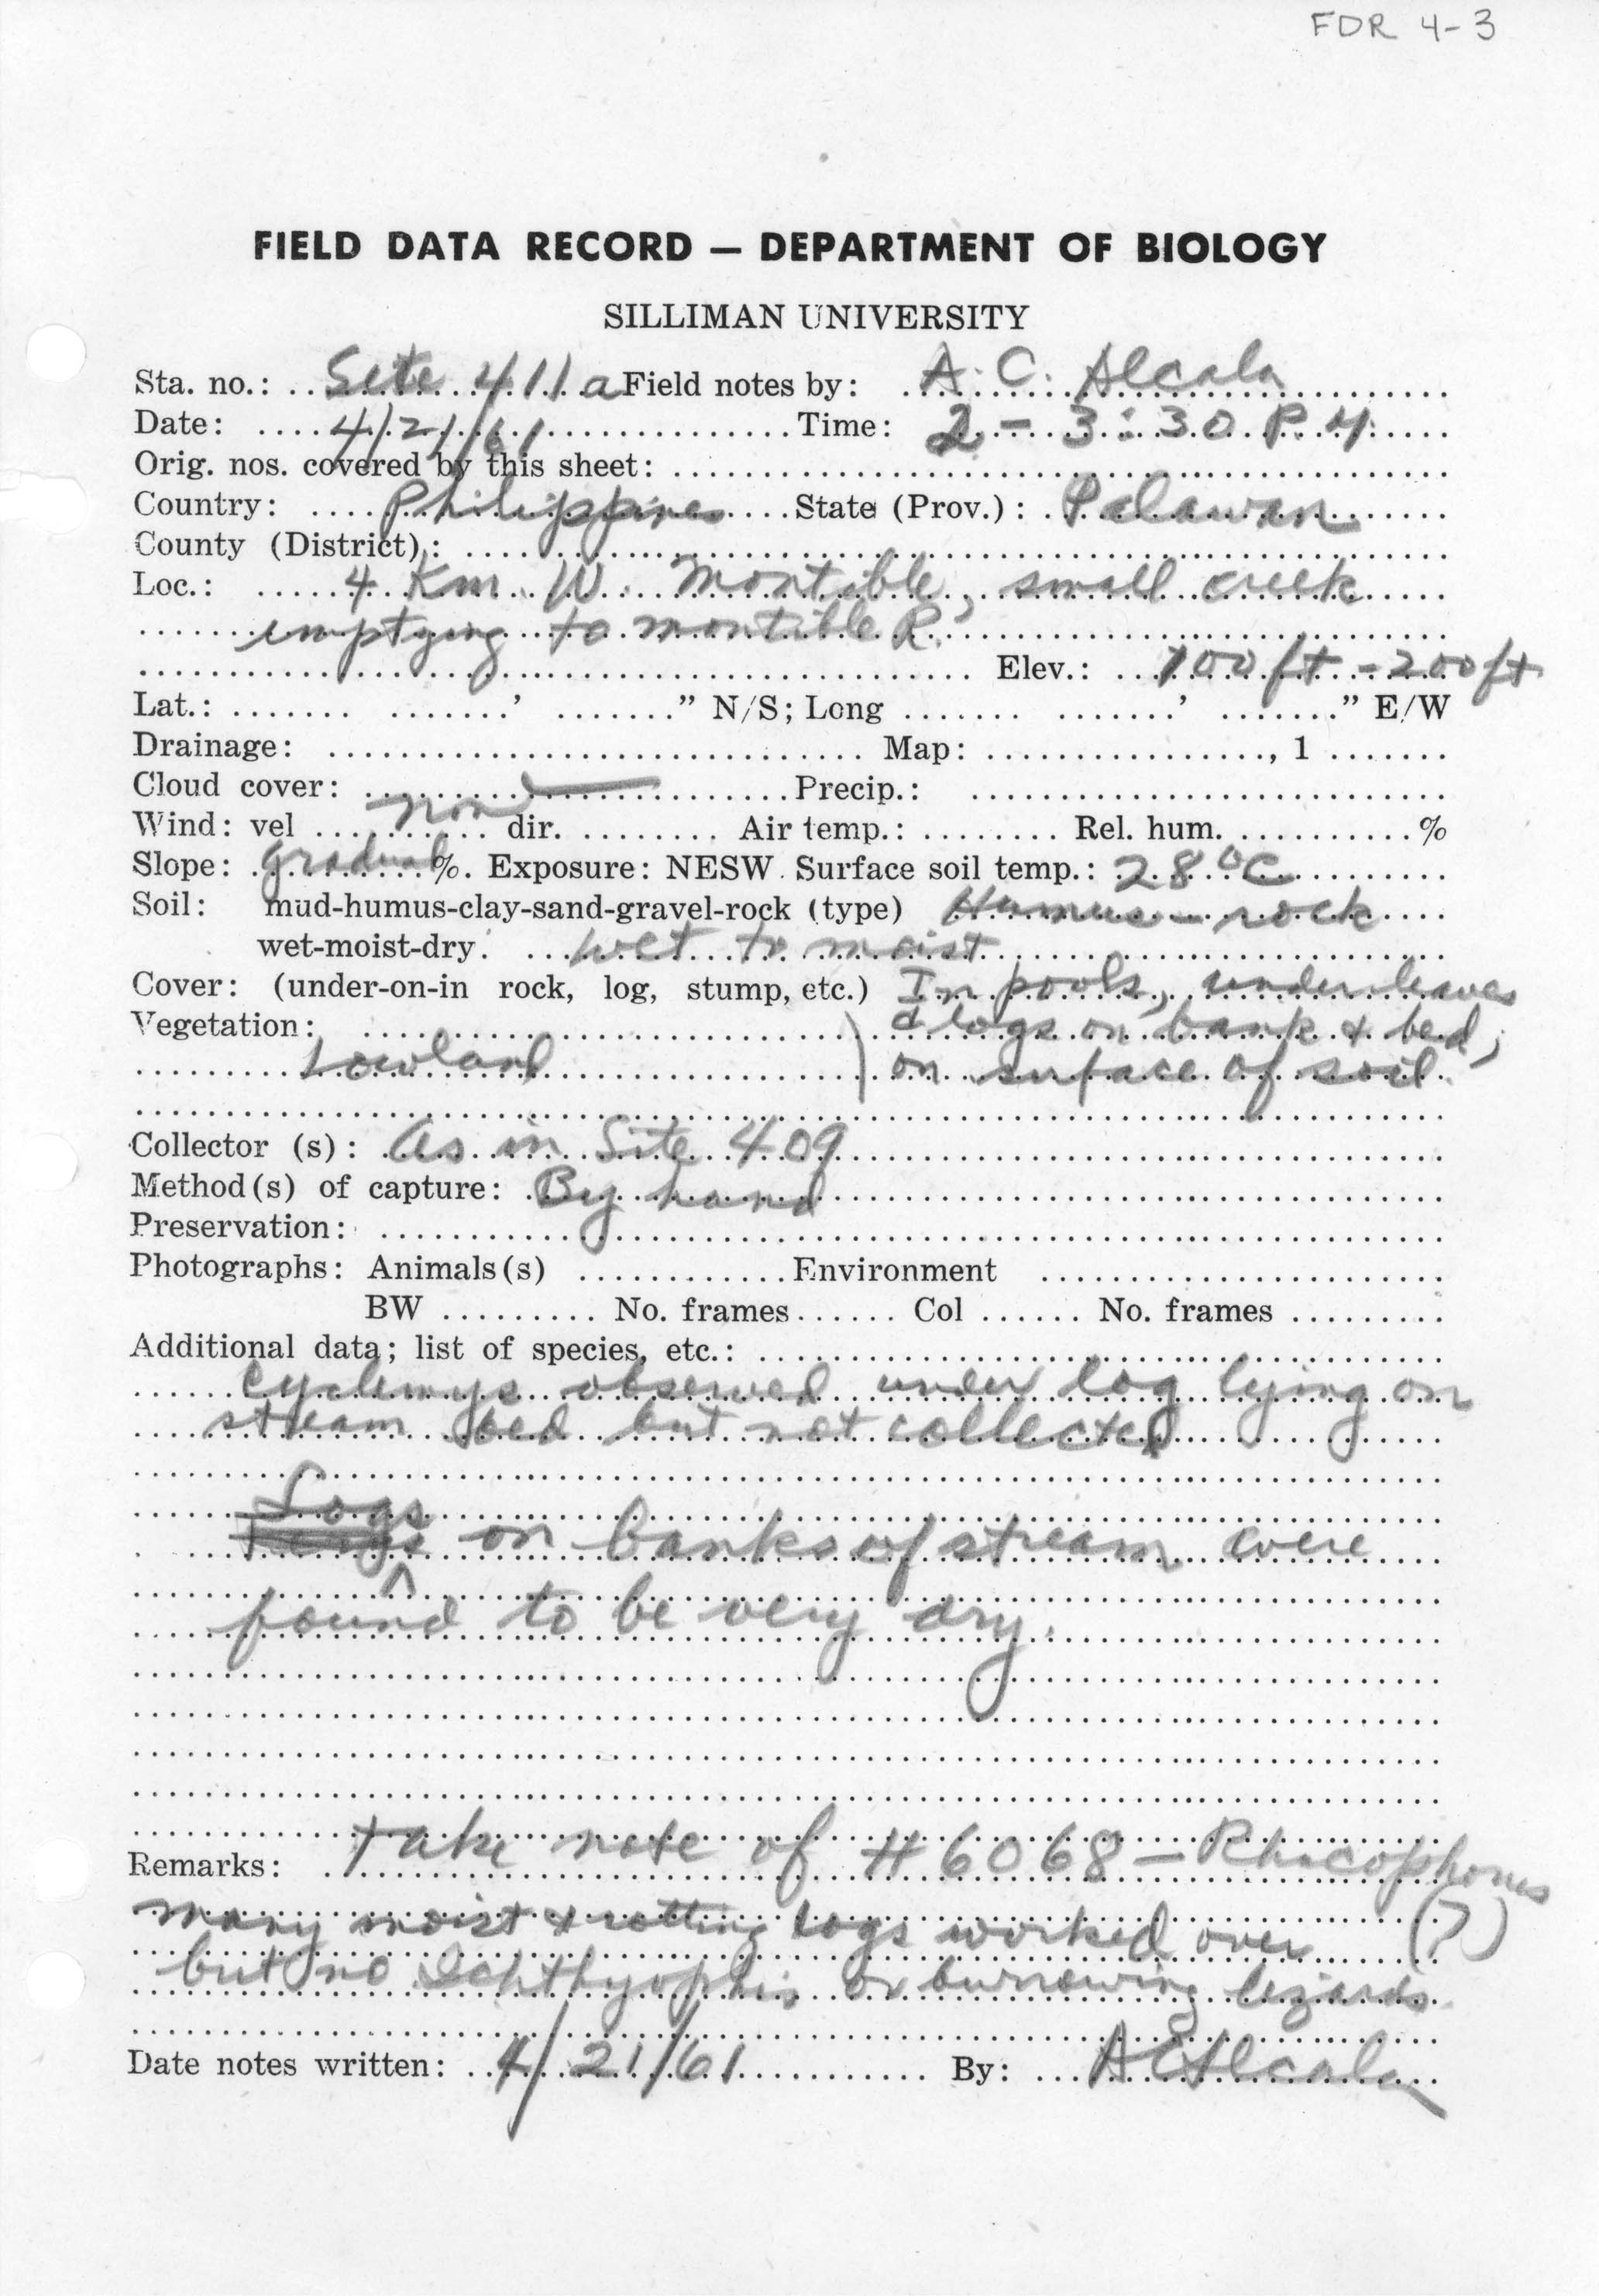 FDR 4-3
FIELD DATA RECORD — DEPARTMENT OF BIOLOGY
SILLIMAN UNIVERSITY
Sta. no.: Site 411a Field notes by: A. C. Alcala
Date: 4/21/61 Time: 2 - 3:30 P.M.
Orig. nos. covered by this sheet:
Country: Philippines State (Prov.): Palawan
County (District):
Loc.: 4 Km. W. Montible, small creek
emptying to Montible R.
Elev.: 100 ft - 200 ft
Lat.: ' " N/S; Long ' " E/W
Drainage: Map: , 1
Cloud cover: Precip.:
Wind: vel dir. Air temp.: Rel. hum. %
Slope: gradual %. Exposure: NESW. Surface soil temp.: 28°C
Soil: mud-humus-clay-sand-gravel-rock (type) Humus - rock
wet-moist-dry. wet to moist
Cover: (under-on-in rock, log, stump, etc.) In pools, under leaves
Vegetation: & logs on bank & bed,
Lowland on surface of soil.
Collector (s): As in Site 409
Method(s) of capture: By hand
Preservation:
Photographs: Animals(s) Environment
BW No. frames Col No. frames
Additional data; list of species, etc.:
Cyclemys observed under log lying on
stream bed but not collected
Logs
on banks of stream were
found to be very dry.
Remarks: Take note of #6068 - Rhacophorus
many moist & rotting logs worked over (?)
but no Ichthyophis or burrowing lizards.
Date notes written: 4/21/61 By: ACAlcala